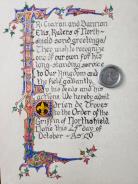 Ciaran and Damrion
Elis, Rulers of North-
shield send greetings!
They wish to recognize
one of our own for his
long-standing service
to Our Kingdom and
the field gallantry.
to his deeds and his
actions. We hereby admit
Brien de Troyes
to the Order of the
Griffin of Northshield
Done this 29th day of
October - AS 50